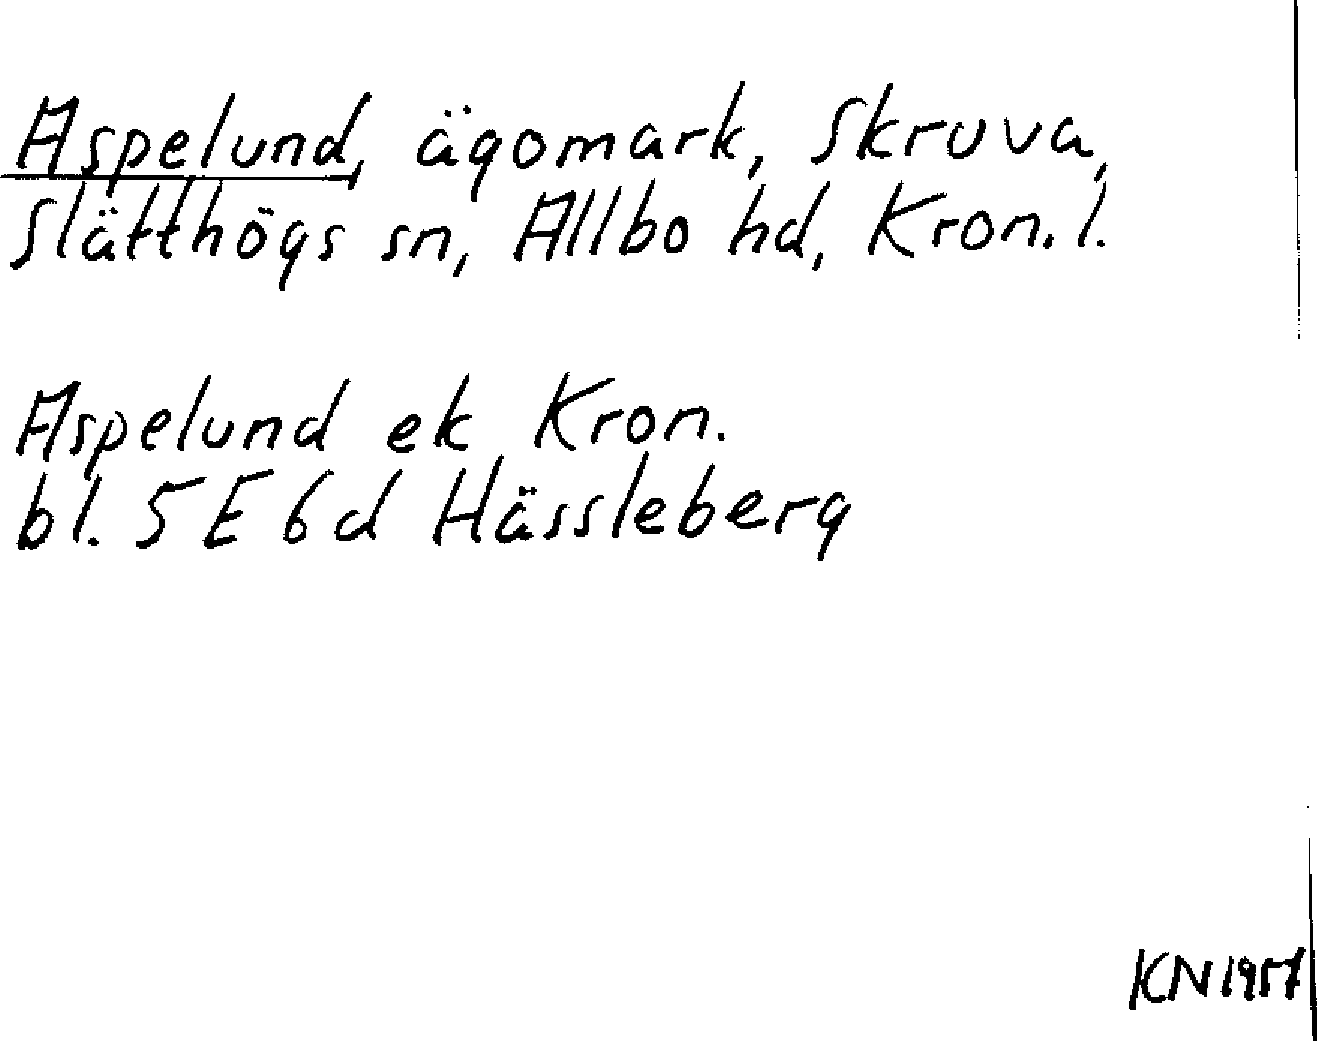 Aspelund, ägomark, Skruva,
Slätthögs sn, Allbo hd, Kron. l.
Aspelund ek Kron.
bl. 5 E 6 d Hässleberg
KN 1957